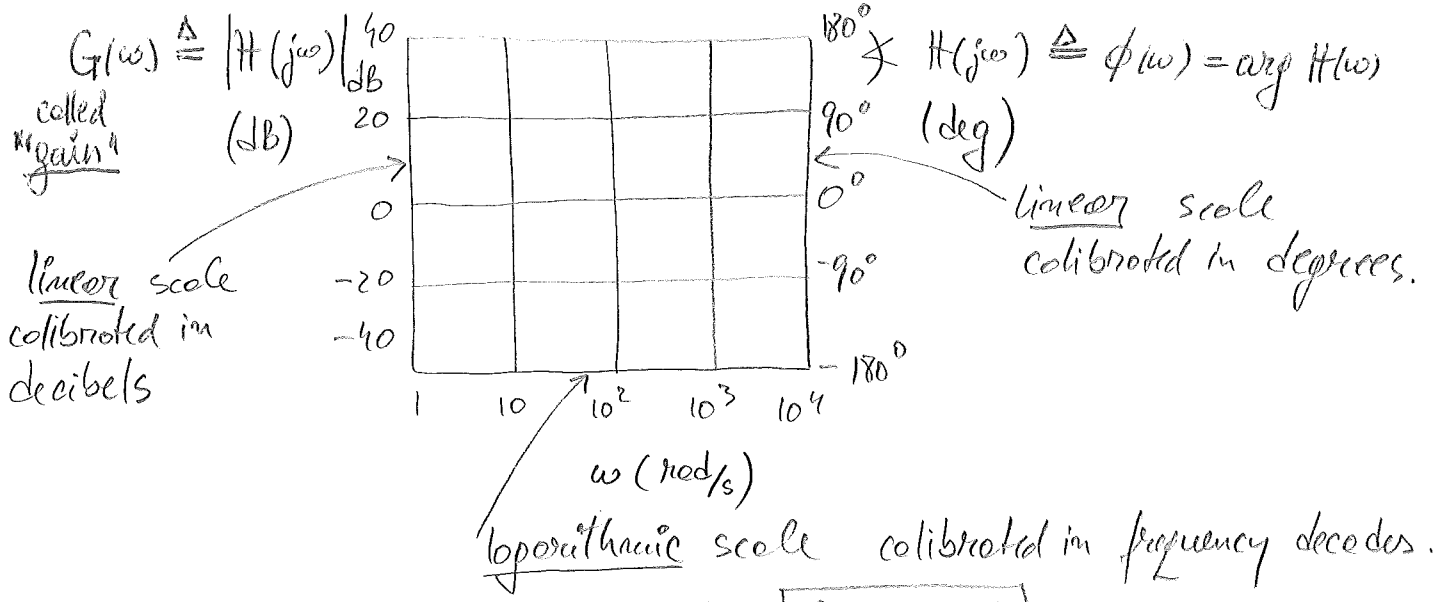 G(ω) ≜ |H(jω)|dB
called
"gain"
(dB)
40
20
0
-20
-40
180°
90°
0°
-90°
-180°
∢ H(jω) ≜ ϕ(ω) = arg H(ω)
(deg)
linear scale
calibrated in
decibels
linear scale
calibrated in degrees.
1 10 10² 10³ 10⁴
ω (rad/s)
logarithmic scale calibrated in frequency decades.